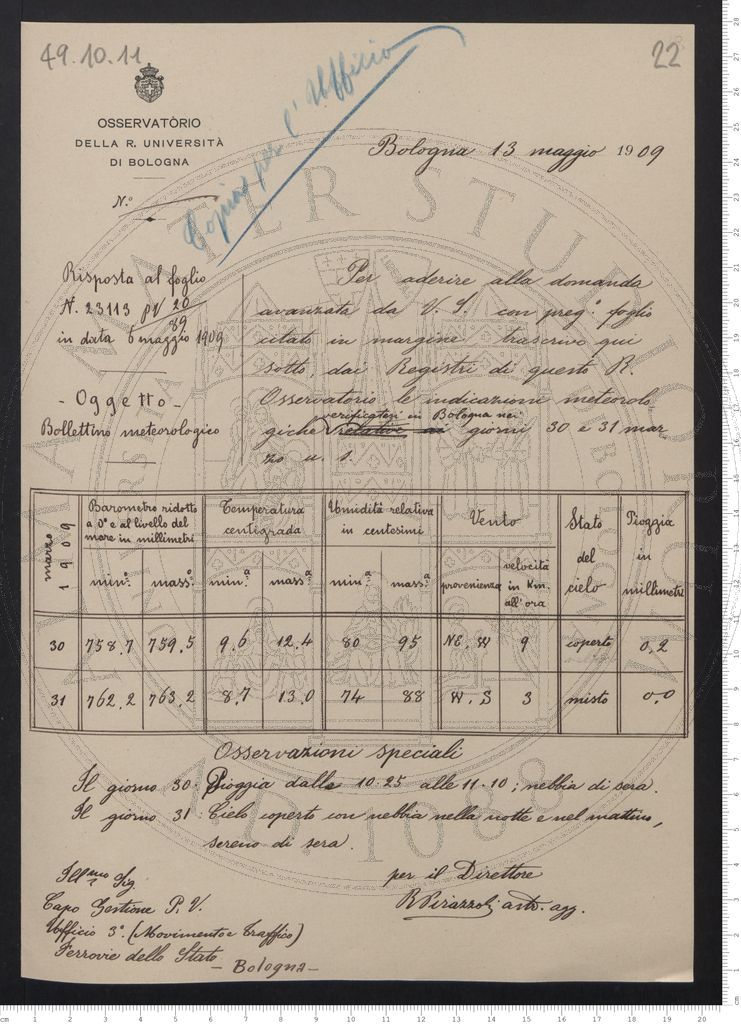 49.10.11
22
Copia per l'Ufficio
OSSERVATÒRIO
DELLA R. UNIVERSITÀ
DI BOLOGNA
N.º
Bologna 13 maggio 1909
Risposta al foglio
N. 23113 PV 20/89
in data 6 maggio 1909
- Oggetto -
Bollettino meteorologico
Per aderire alla domanda
avanzata da V. S. con preg.º foglio
citato in margine trascrivo qui
sotto, dai Registri di questo R.
Osservatorio, le indicazioni meteorolo
verificatesi in Bologna nei
giche relative ai giorni 30 e 31 mar-
zo u. s.
marzo 1909
Barometro ridotto a 0° e al livello del mare in millimetri
Temperatura centigrada
Umidità relativa in centesimi
Vento
Stato del cielo
Pioggia in millimetri
min.º mass.º min.ª mass.ª min.ª mass.ª provenienza velocità in Km. all'ora
30 758,7 759,5 9,6 12,4 80 95 NE, W 9 coperto 0,2
31 762,2 763,2 8,7 13,0 74 88 W, S 3 misto 0,0
Osservazioni speciali
Il giorno 30: Pioggia dalle 10.25 alle 11.10; nebbia di sera.
Il giorno 31: Cielo coperto con nebbia nella notte e nel mattino,
sereno di sera.
per il Direttore
R Pirazzoli astr. agg.
Ill.mo Sig.
Capo Gestione P. V.
Ufficio 3º. (Movimento e Traffico)
Ferrovie dello Stato
- Bologna -
ALMA MATER STUDIORUM
A.D. 1088